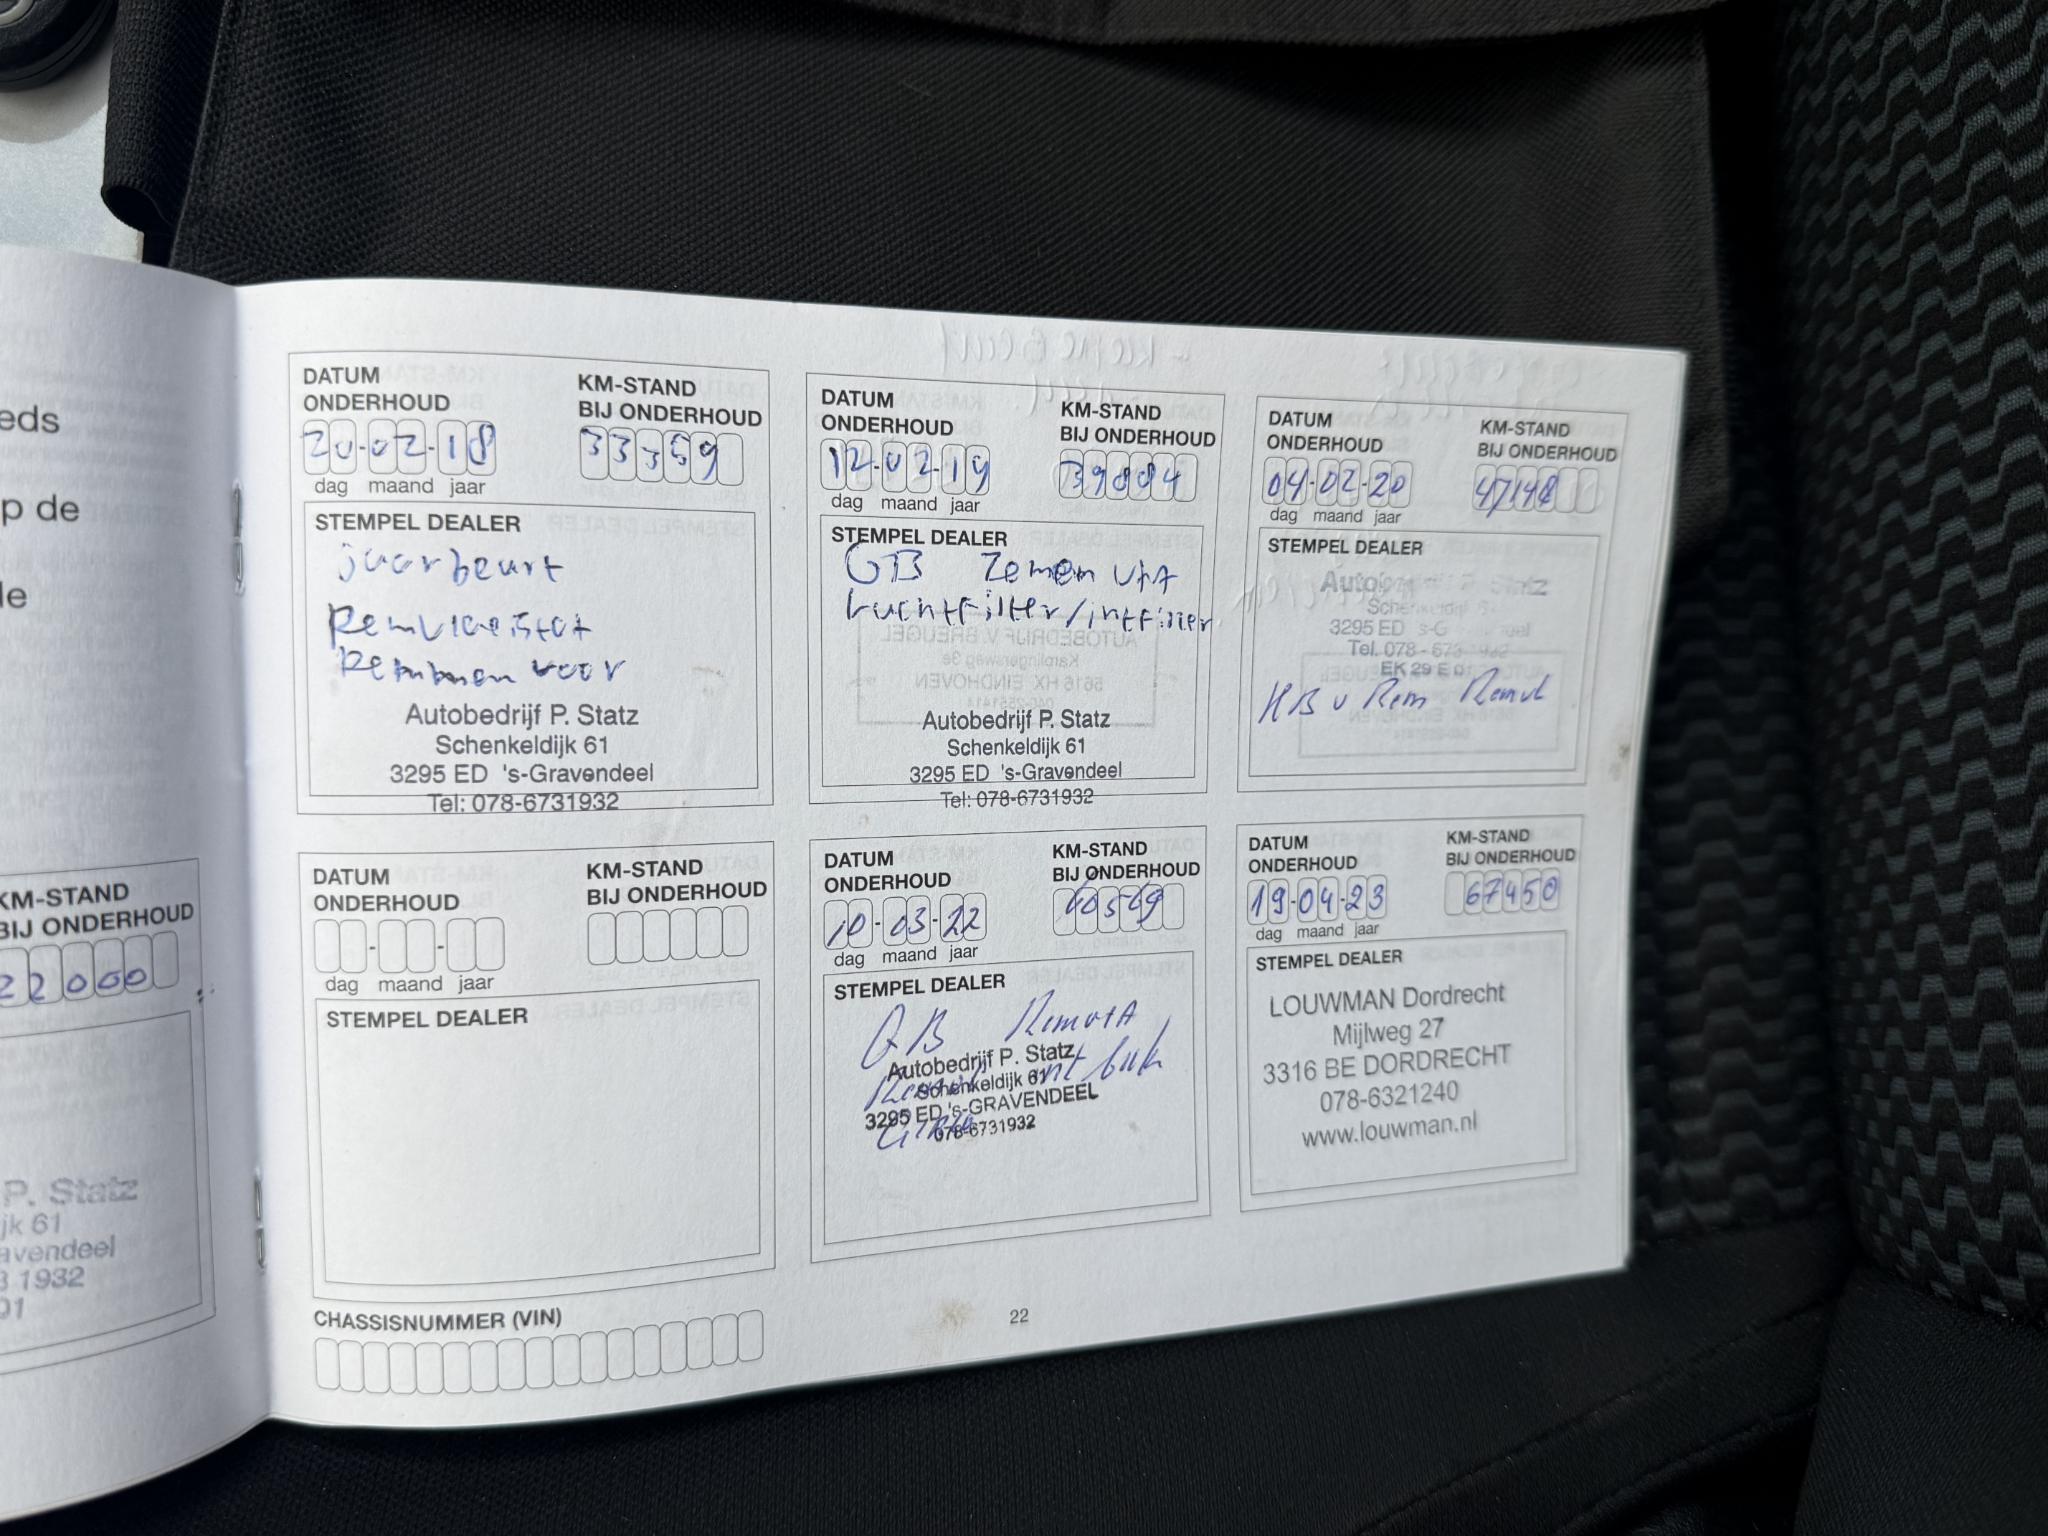 eds
p de
le
KM-STAND
BIJ ONDERHOUD
22000
P. Statz
jk 61
avendeel
3 1932
01
DATUM
ONDERHOUD
KM-STAND
BIJ ONDERHOUD
20-02-18
33359
dag maand jaar
STEMPEL DEALER
jaarbeurt
Remvloeistof
Remmen voor
Autobedrijf P. Statz
Schenkeldijk 61
3295 ED 's-Gravendeel
Tel: 078-6731932
DATUM
ONDERHOUD
KM-STAND
BIJ ONDERHOUD
12-02-19
39884
dag maand jaar
STEMPEL DEALER
GB Remmen
Luchtfilter/intfilter
Autobedrijf P. Statz
Schenkeldijk 61
3295 ED 's-Gravendeel
Tel: 078-6731932
DATUM
ONDERHOUD
KM-STAND
BIJ ONDERHOUD
04-02-20
47148
dag maand jaar
STEMPEL DEALER
Statz
3295 ED
Tel. 078 - 673
Rem
DATUM
ONDERHOUD
KM-STAND
BIJ ONDERHOUD
dag maand jaar
STEMPEL DEALER
DATUM
ONDERHOUD
KM-STAND
BIJ ONDERHOUD
10-03-22
dag maand jaar
STEMPEL DEALER
GB
Autobedrijf P. Statz
Schenkeldijk 61
3295 ED 's-GRAVENDEEL
078-6731932
DATUM
ONDERHOUD
KM-STAND
BIJ ONDERHOUD
19-04-23
67450
dag maand jaar
STEMPEL DEALER
LOUWMAN Dordrecht
Mijlweg 27
3316 BE DORDRECHT
078-6321240
www.louwman.nl
CHASSISNUMMER (VIN)
22